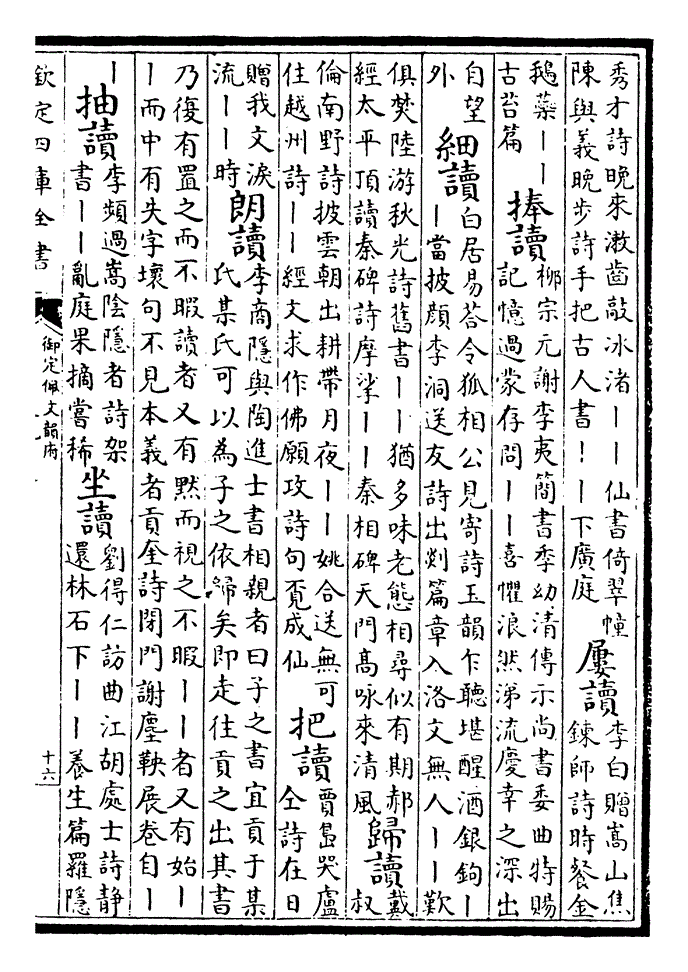 秀才詩晚來漱齒敲冰渚――仙書倚翠幢
陳與義晚步詩手把古人書――下廣庭
屢讀
李白贈嵩山焦
鍊師詩時餐金
鵝藥――
古苔篇
捧讀
柳宗元謝李夷簡書季幼清傳示尚書委曲特賜
記憶過蒙存問――喜懼浪然涕流慶幸之深出
自望
外
細讀
白居易荅令狐相公見寄詩玉韻乍聽堪醒酒銀鉤―
―當披顔李洞送友詩出剡篇章入洛文無人――歎
俱焚陸游秋光詩舊書――猶多味老態相尋似有期郝
經太平頂讀秦碑詩摩挲――秦相碑天門高咏來清風
歸讀
戴
叔
倫南野詩披雲朝出耕帶月夜――姚合送無可
住越州詩――經文求作佛願攻詩句覓成仙
把讀
賈島哭盧
仝詩在日
贈我文淚
流――時
朗讀
李商隱與陶進士書相親者曰子之書宜貢于某
氏某氏可以為子之依歸矣即走往貢之出其書
乃復有置之而不暇讀者又有默而視之不暇――者又有始―
―而中有失字壞句不見本義者貢奎詩閉門謝塵鞅展卷自―
―
抽讀
李頻過嵩陰隱者詩架
書――亂庭果摘嘗稀
坐讀
劉得仁訪曲江胡處士詩靜
還林石下――養生篇羅隱
欽定四庫全書
御定佩文韻府
十六